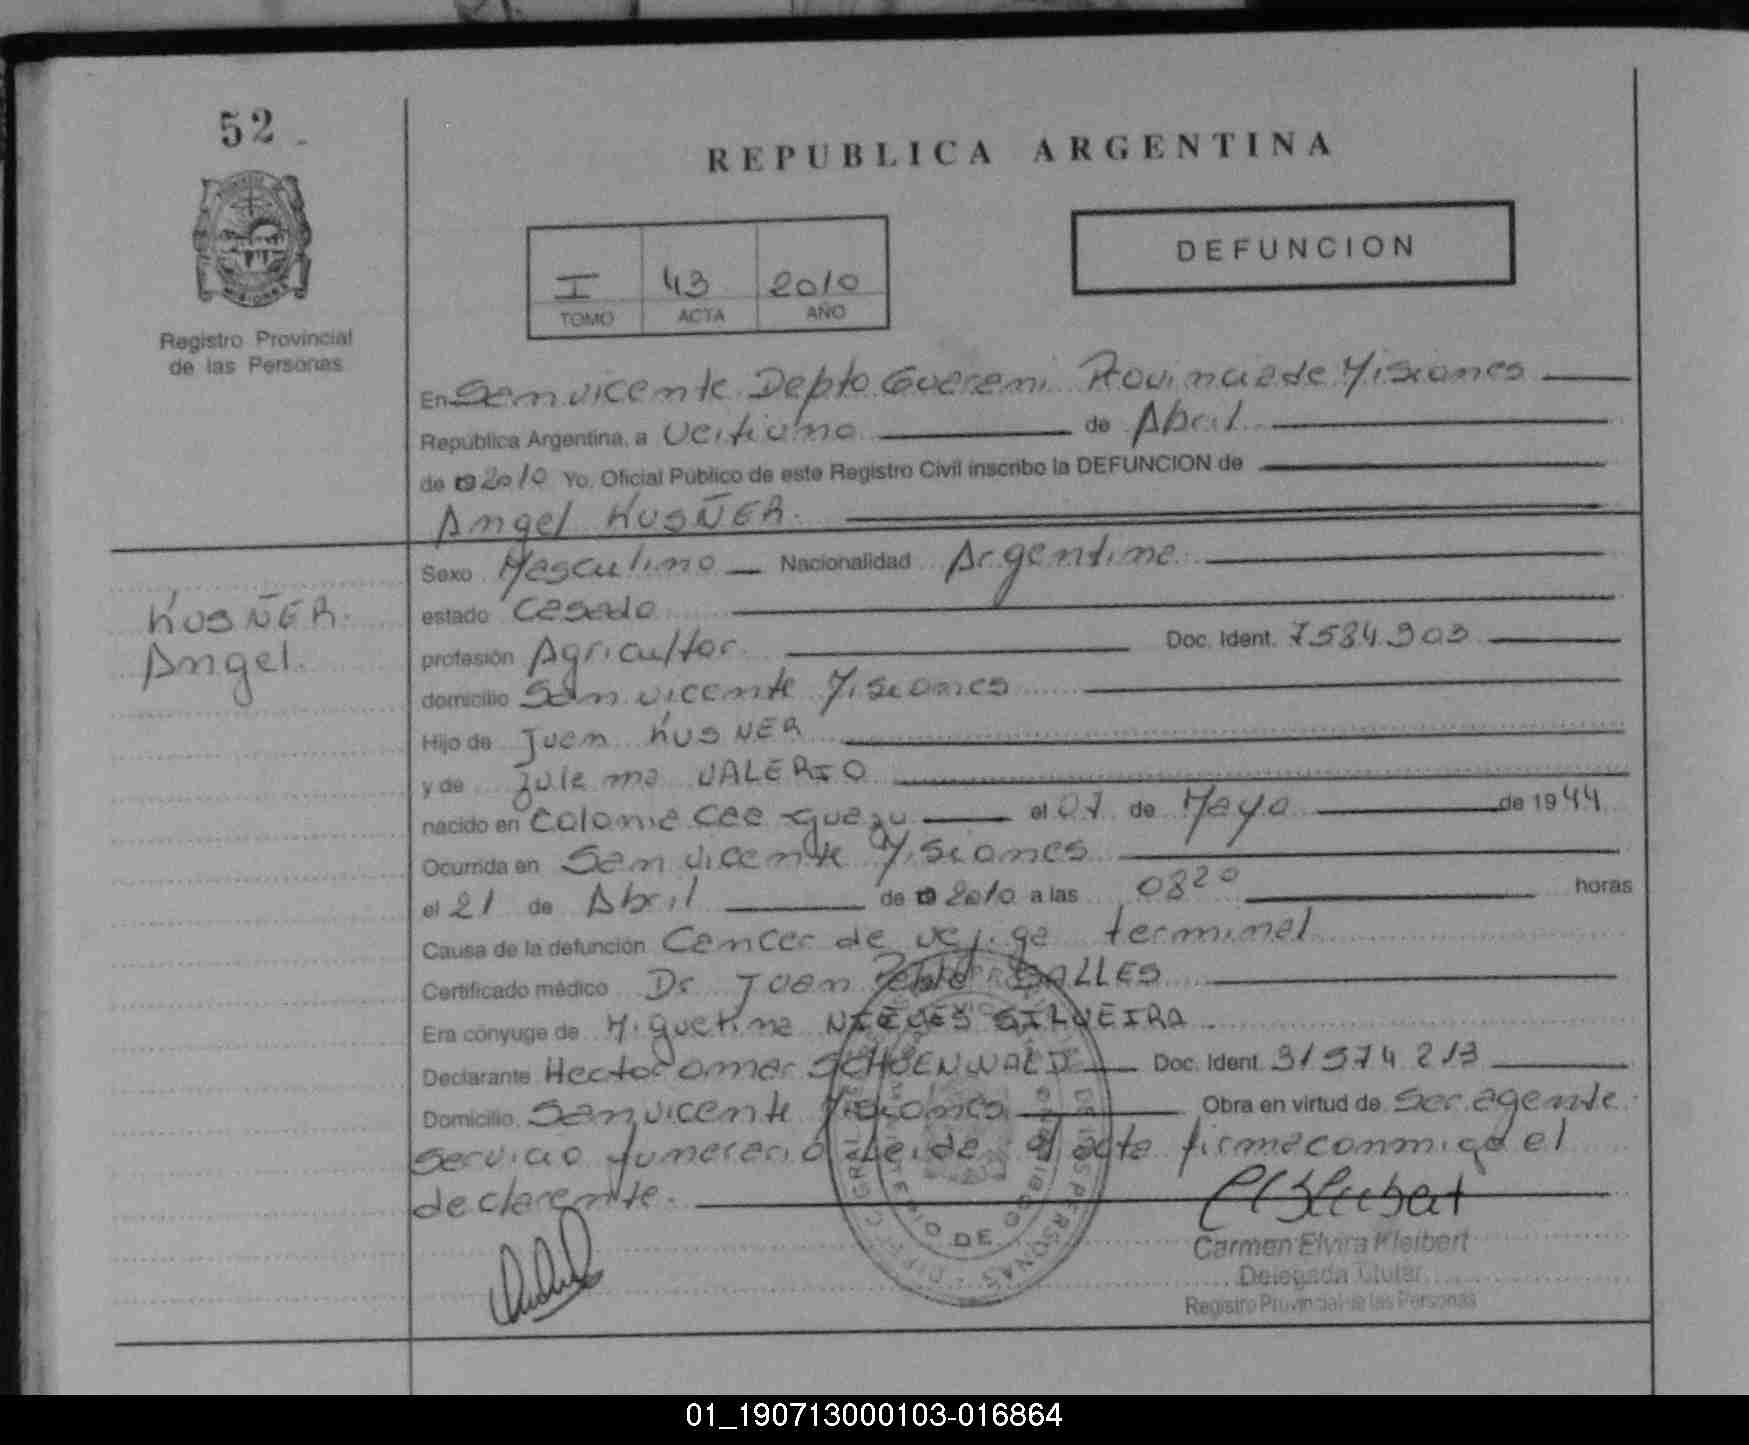 52
REPUBLICA ARGENTINA
DEFUNCION
I 43 2010
TOMO ACTA AÑO
Registro Provincial
de las Personas
En San vicente Depto Guarani Provincia de Misiones
República Argentina, a Veitiuno de Abril
de 2010 Yo, Oficial Público de este Registro Civil inscribo la DEFUNCION de
Angel KUSÑER.
KUSÑER.
Angel.
Sexo Masculino Nacionalidad Argentina
estado Casado
profesión Agricultor. Doc. Ident. 7584.903
domicilio San vicente Misiones
Hijo de Juan KUSNER
y de Zulema VALERIO
nacido en Colonia Caa-guazu el 07 de Mayo de 1944
Ocurrida en San vicente Misiones
el 21 de Abril de 2010 a las 0820 horas
Causa de la defunción Cancer de vejiga terminal
Certificado médico Dr Juan Pablo SALLES
Era cónyuge de Miguelina NIEVES SILVEIRA
Declarante Hector omar SCHOENWALD Doc. Ident. 31574213
Domicilio San vicente Misiones Obra en virtud de Ser agente
servicio funerario Leida el acta firma conmigo el
declarante.
Carmen Elvira Kleibert
Delegada Titular
Registro Provincial de las Personas
01_190713000103-016864